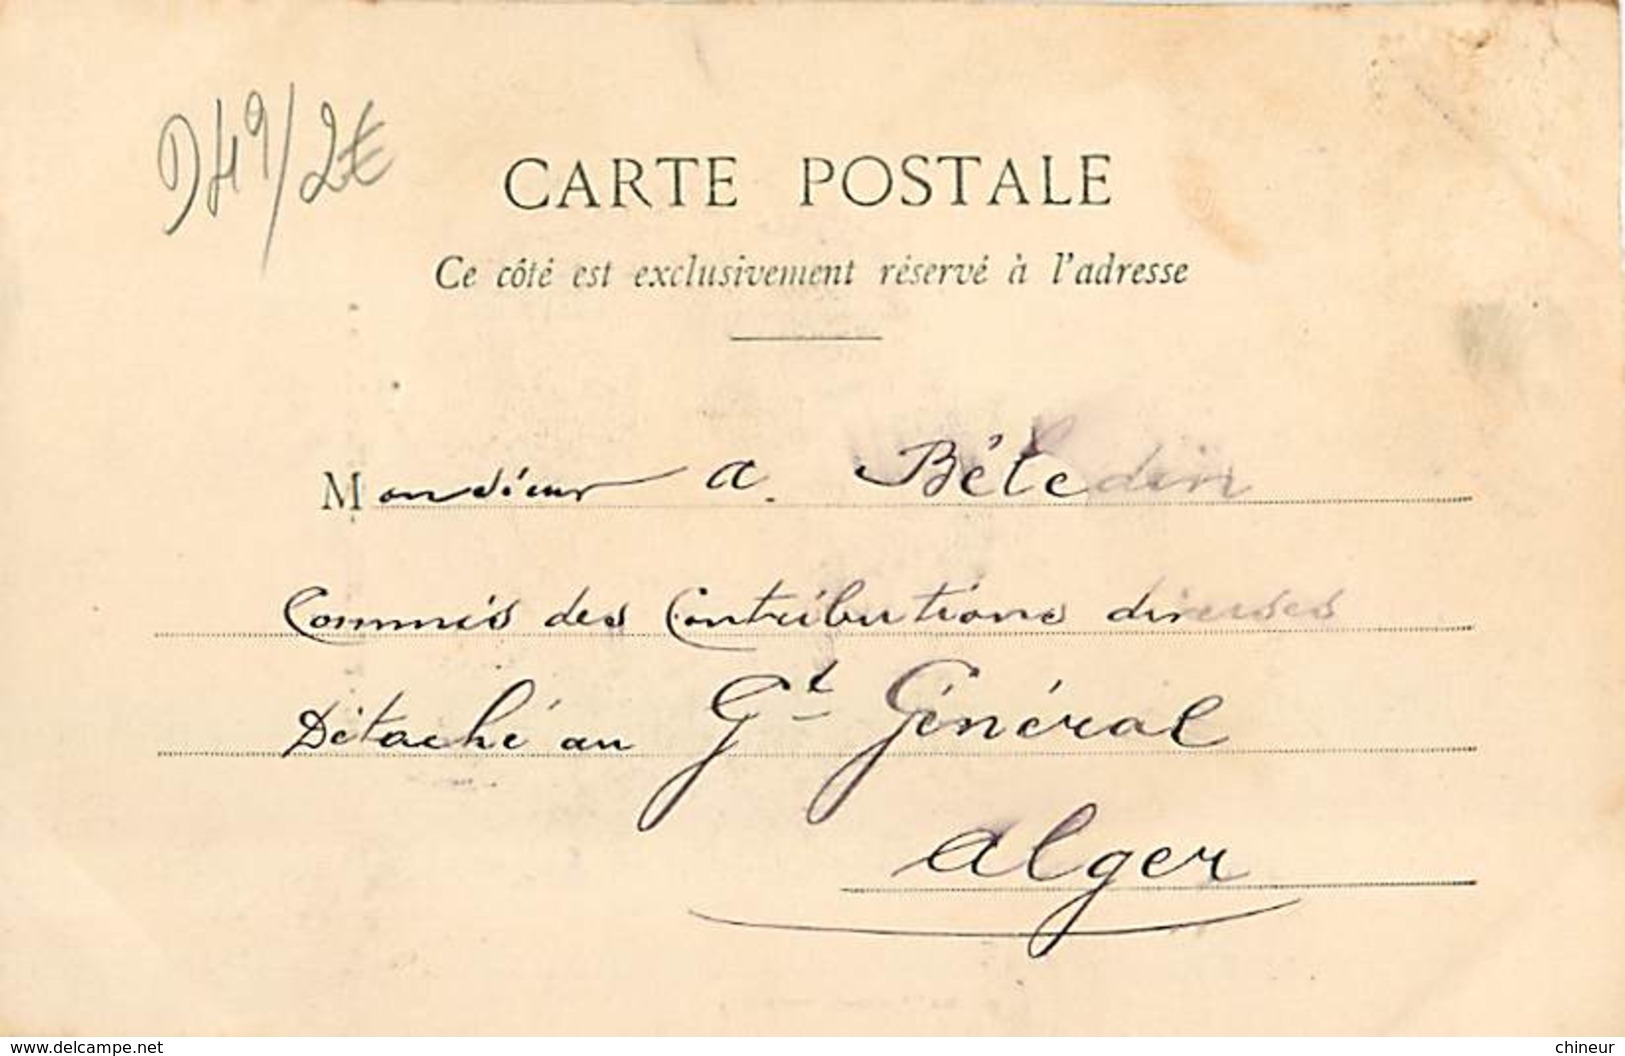 D49/2€
CARTE POSTALE
Ce côté est exclusivement réservé à l'adresse
Monsieur A. Béledin
Commis des Contributions diverses
Détaché au Gt Général
Alger
www.delcampe.net
chineur